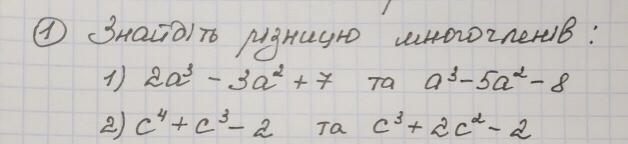 ① Знайдіть різницю многочленів:
1) 2a³ - 3a² + 7 та a³ - 5a² - 8
2) c⁴ + c³ - 2 та c³ + 2c² - 2